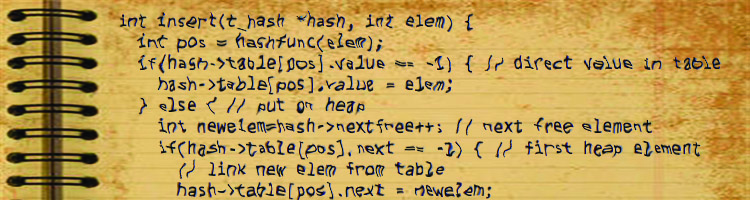 int insert(t_hash *hash, int elem) {
int pos = hashfunc(elem);
if(hash->table[pos].value == -1) { // direct value in table
hash->table[pos].value = elem;
} else { // put on heap
int newelem=hash->nextfree++; // next free element
if(hash->table[pos].next == -1) { // first heap element
// link new elem from table
hash->table[pos].next = newelem;